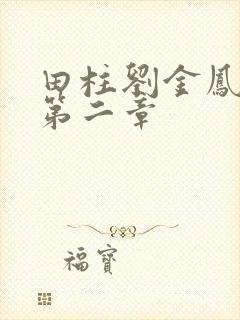 田柱劉金鳳
第二章
福寶